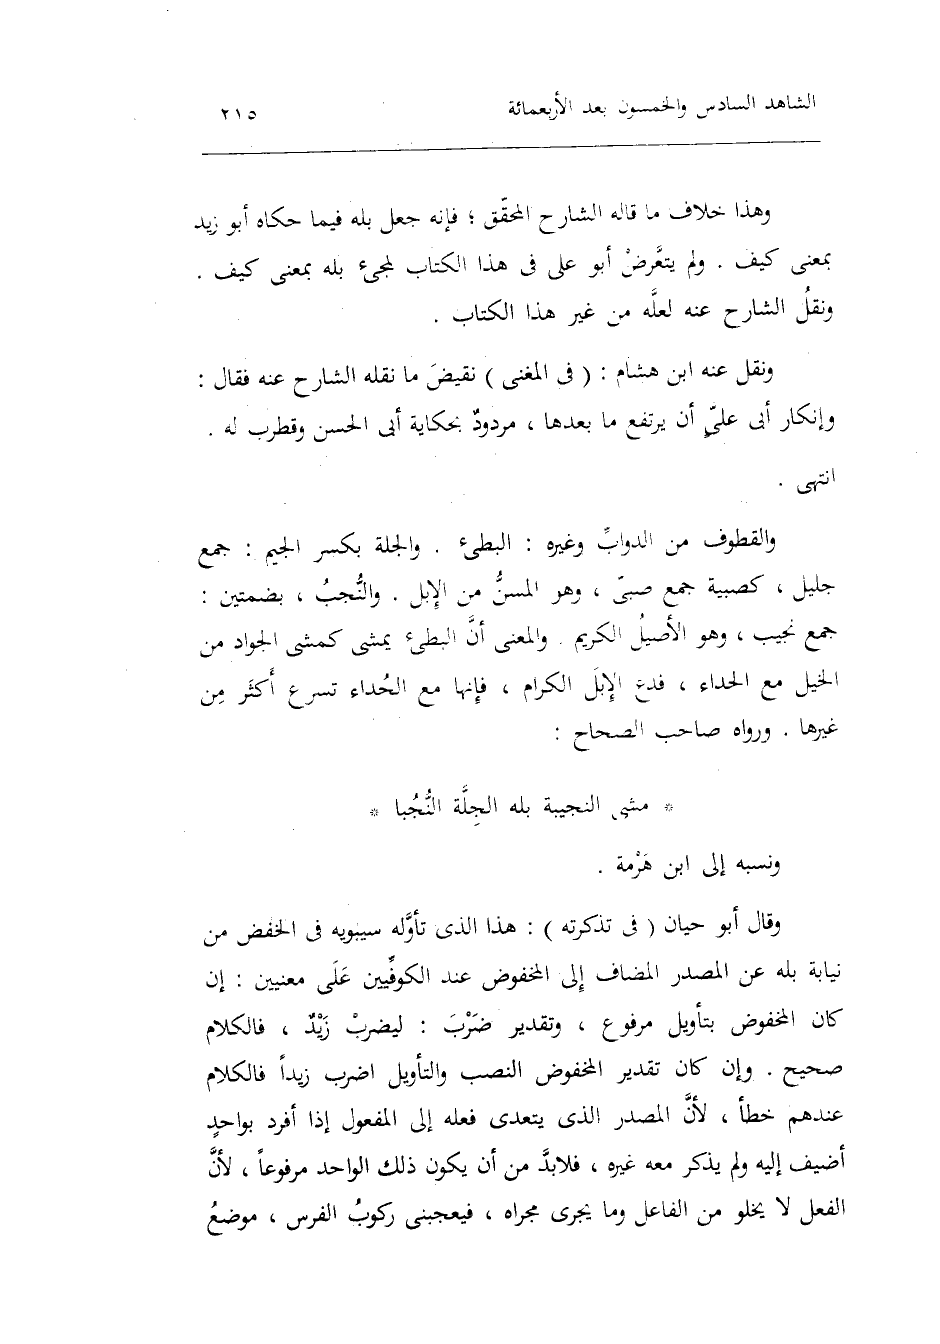 الشاهد السادس والخمسون بعد الأربعمائة ٢١٥
وهذا خلاف ما قاله الشارح المحقّق ؛ فإنه جعل بله فيما حكاه أبو زيد
بمعنى كيف . ولم يتعَّرضْ أبو على فى هذا الكتاب لمجىء بله بمعنى كيف .
ونقلُ الشارح عنه لعلَّه من غير هذا الكتاب .
ونقل عنه ابن هشام : ( فى المغنى ) نقيضَ ما نقله الشارح عنه فقال :
وإنكار أبى علىّ أن يرتفع ما بعدها ، مردودٌ بحكاية أبى الحسن وقطرب له .
انتهى .
والقطوف من الدوابِّ وغيره : البطىء . والجلة بكسر الجيم : جمع
جليل ، كصبية جمع صبىّ ، وهو المسنُّ من الإبل . والنُّجبُ ، بضمتين :
جمع نجيب ، وهو الأصيلُ الكريم . والمعنى أنَّ البطىء يمشى كمشى الجواد من
الخيل مع الحداء ، فدع الإبلَ الكرام ، فإنها مع الحُداء تسرع أكثَر مِن
غيرها . ورواه صاحب الصحاح :
* مشى النجيبة بله الجِلَّة النُّجُبا *
ونسبه إلى ابن هَرْمة .
وقال أبو حيان ( فى تذكرته ) : هذا الذى تأوَّله سيبويه فى الخفض من
نيابة بله عن المصدر المضاف إلى المخفوض عند الكوفِّيين عَلَى معنيين : إن
كان المخفوض بتأويل مرفوع ، وتقدير ضَرْبَ : ليضربْ زَيْدٌ ، فالكلام
صحيح . وإن كان تقدير المخفوض النصب والتأويل اضرب زيداً فالكلام
عندهم خطأ ، لأنَّ المصدر الذى يتعدى فعله إلى المفعول إذا أفرد بواحدٍ
أضيف إليه ولم يذكر معه غيره ، فلابدَّ من أن يكون ذلك الواحد مرفوعاً ، لأنَّ
الفعل لا يخلو من الفاعل وما يجرى مجراه ، فيعجبنى ركوبُ الفرس ، موضعُ